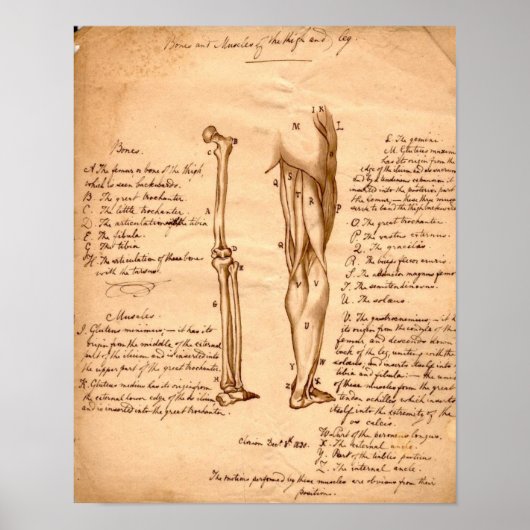 Bones and Muscles of the thigh and leg.
Bones.
A. The femur or bone of the thigh,
which is seen backwards.
B. The great trochanter.
C. The little trochanter.
D. The articulation with the tibia
E. The fibula.
G. The tibia
H. The articulation of these bones
with the tarsus.
Muscles.
I. Gluteus minimus; – it has its
origin from the middle of the external
part of the ilium and is inserted into
the upper part of the great trochanter.
K. Gluteus medius has its origin from
the external lower edge of the os ilium
and is inserted into the great trochanter.
A
B
C
D
E
G
H
I K
L
M
O
N
Q
S
T
R
P
Q
V V
U
Y
W
Z
X
L. The gemini.
M. Gluteus maximus
has its origin from the
edge of the ilium and
inserted into the posterior part
the femur; – these three muscles
serve to bend the thigh backwards
O. The great trochanter
P. The vastus externus.
Q. The gracilis
R. The biceps flexor cruris.
S. The magnus femo
T. The semitendinosus.
U. The solæus.
V. The gastrocnemius; – it has
its origin from the condyle of the
femur, and descends down
back of the leg, uniting with the
solæus, and inserts itself into
tibia and fibula: – the union
of these muscles form the great
tendon achilles which inserts
itself into the extremity of the
os calcis.
W. Part of the peroneus longus.
X. The external ancle.
Y. Part of the tibialis posticus
Z. The internal ancle.
Dec 8th 1830.
The motions performed by these muscles are obvious from their
positions.